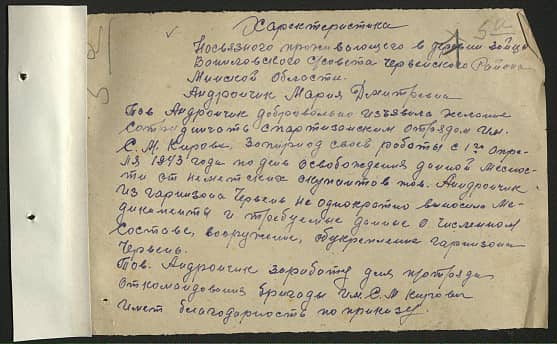 Характеристика
5
На связного проживающего в деревни Зайцы
Войниловского С/Совета Червеньского Района
Минской области.
Андрончик Мария Дмитревна
Тов. Андрончик добровольно изъявила желание
сотрудничать с партизанским отрядом им.
С. М. Кирова. За период своей работы с 1го апре-
ля 1943 года по день освобождения данной местнос-
ти от неметских окупантов тов. Андрончик
из гарнизона Червень не однократно выносила ме-
дикаменты и требуемые данные о численном
составе, вооружение, обукреплению гарнизона
Червень.
Тов. Андрончик за работу для отряда
от командования бригады им. С. М Кирова
имет благодарность по приказу.